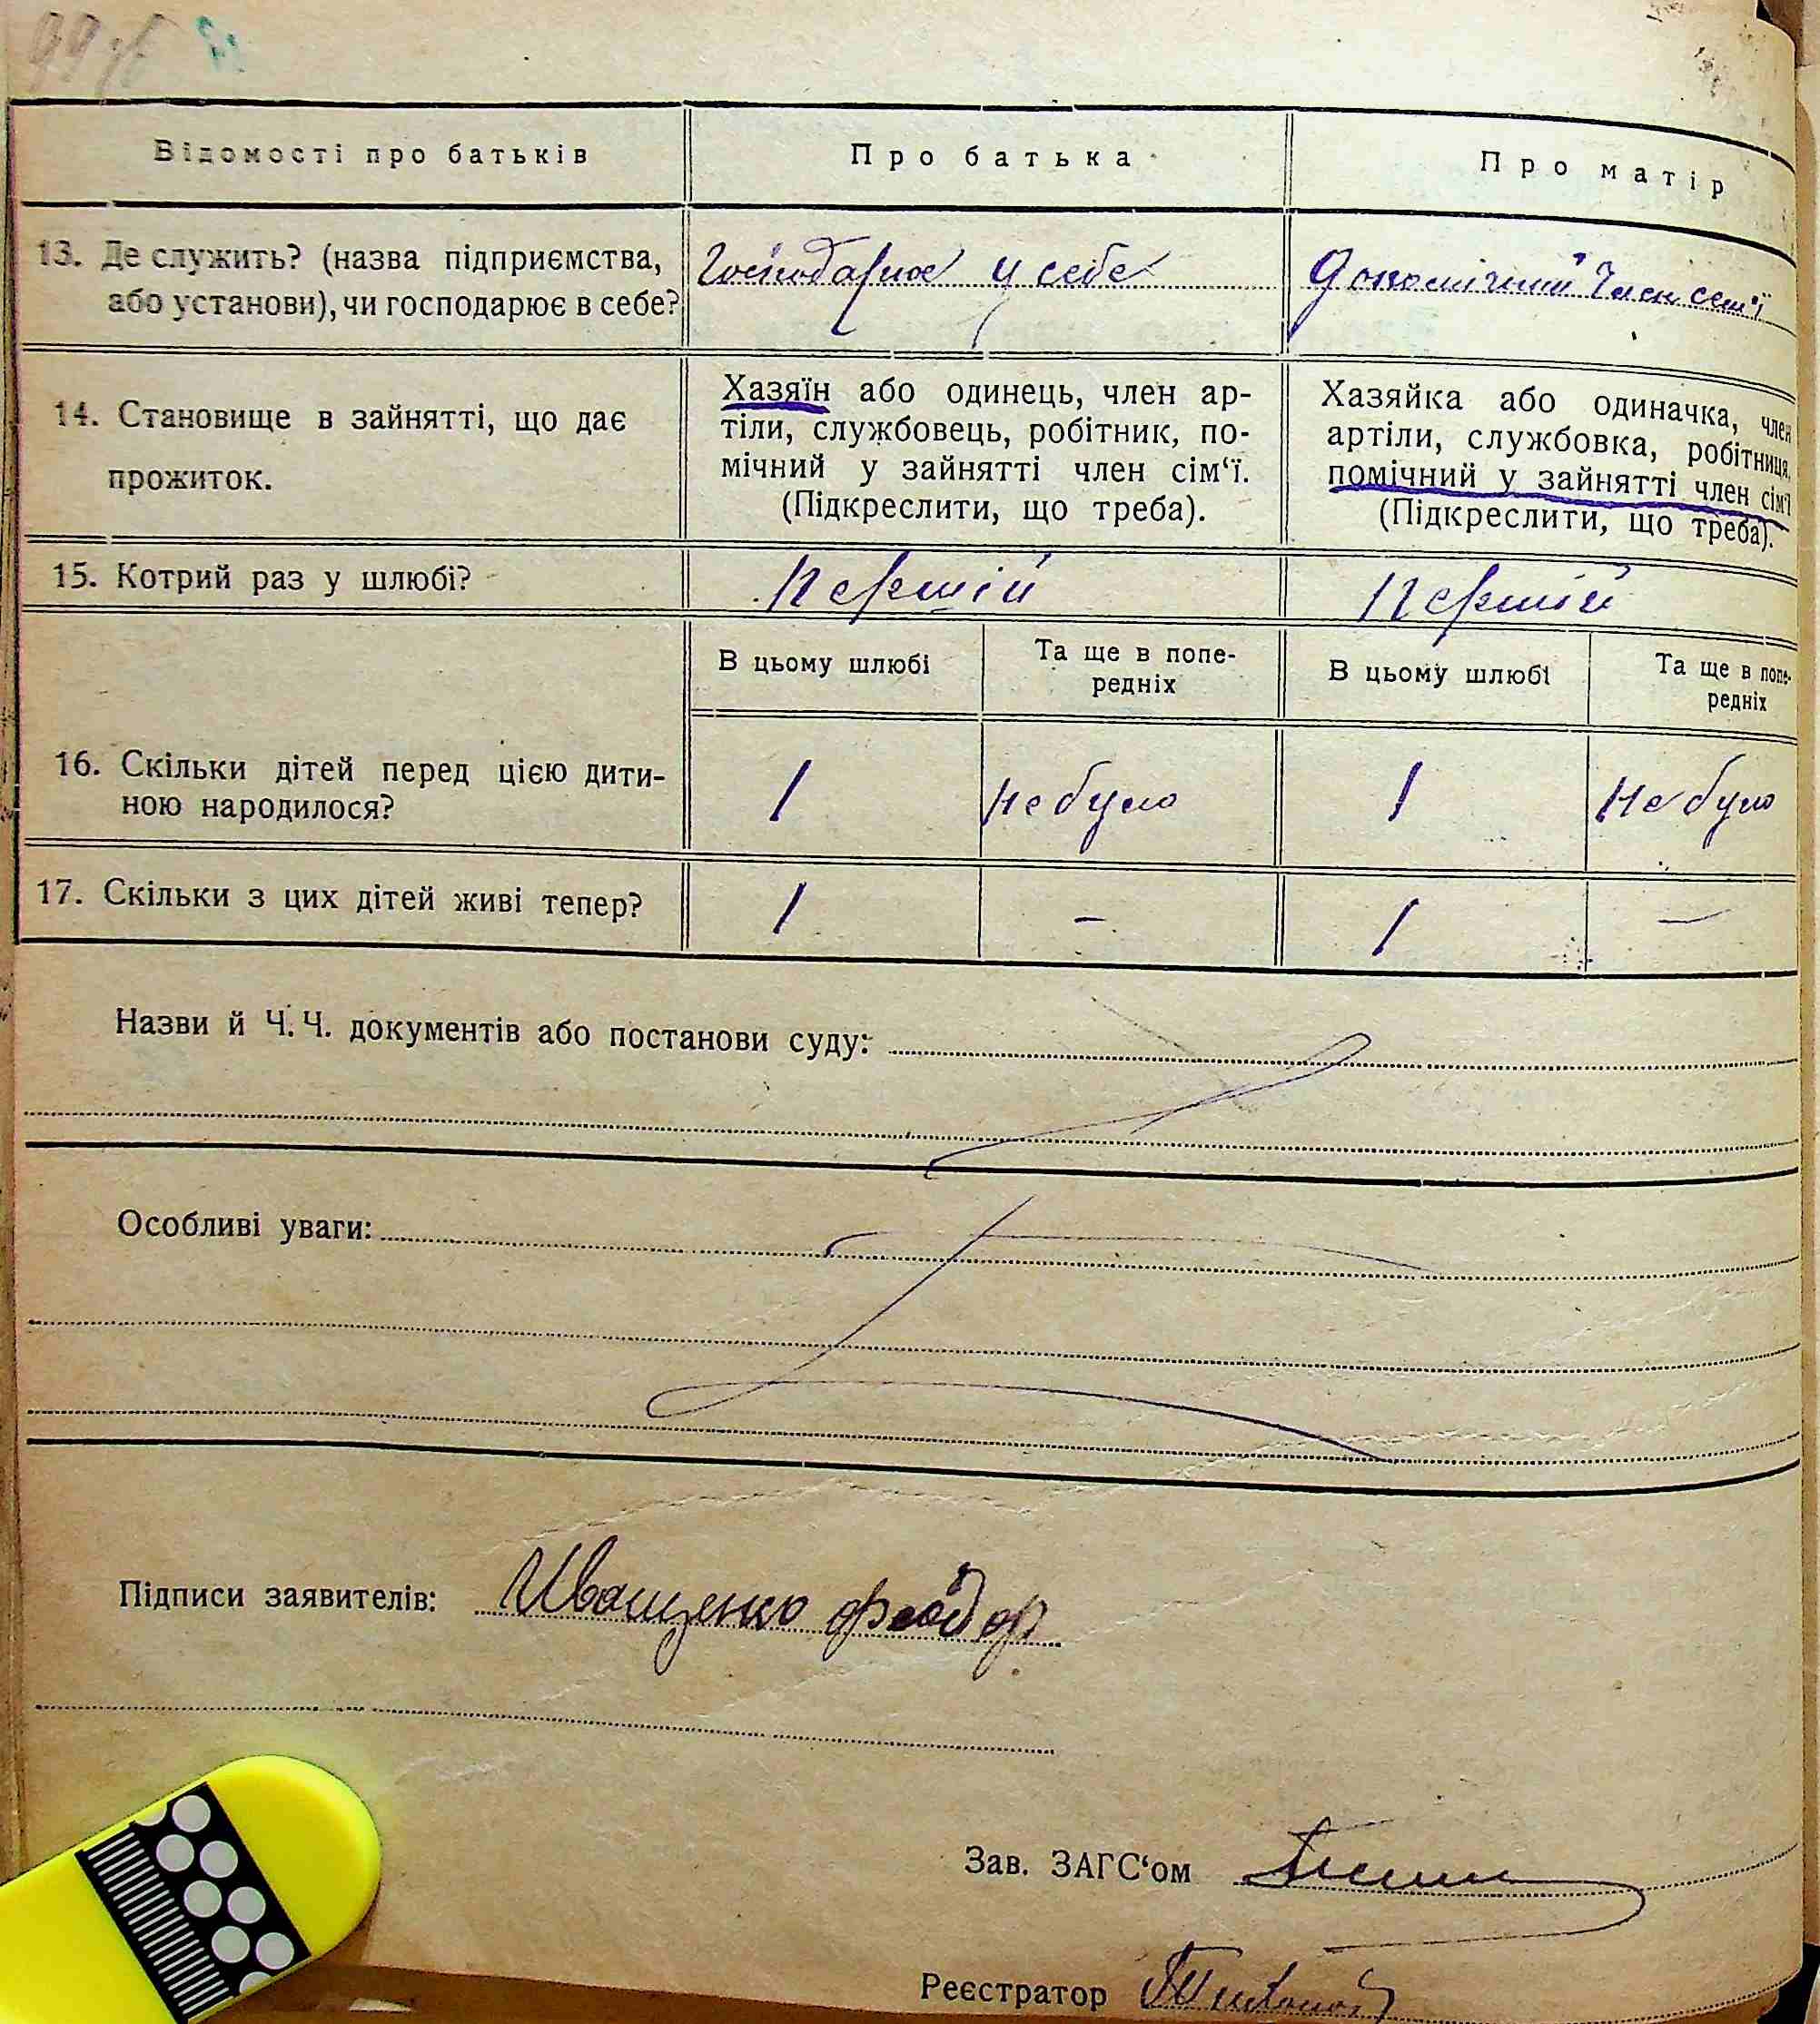 Відомості про батьків
Про батька
Про матір
13. Де служить? (назва підприємства,
або установи), чи господарює в себе?
Господарює у себе
Допомічний член сем'ї
14. Становище в зайнятті, що дає
прожиток.
Хазяїн або одинець, член ар-
тіли, службовець, робітник, по-
мічний у зайнятті член сім‘ї.
(Підкреслити, що треба).
Хазяйка або одиначка, член
артіли, службовка, робітниця,
помічний у зайнятті член сім‘ї
(Підкреслити, що треба).
15. Котрий раз у шлюбі?
першій
першій
В цьому шлюбі
Та ще в попе-
редніх
В цьому шлюбі
Та ще в попе-
редніх
16. Скільки дітей перед цією дити-
ною народилося?
1
не було
1
не було
17. Скільки з цих дітей живі тепер?
1
-
1
-
Назви й Ч. Ч. документів або постанови суду:
Особливі уваги:
Підписи заявителів: Иващенко Феодор
Зав. ЗАГС‘ом
Реєстратор